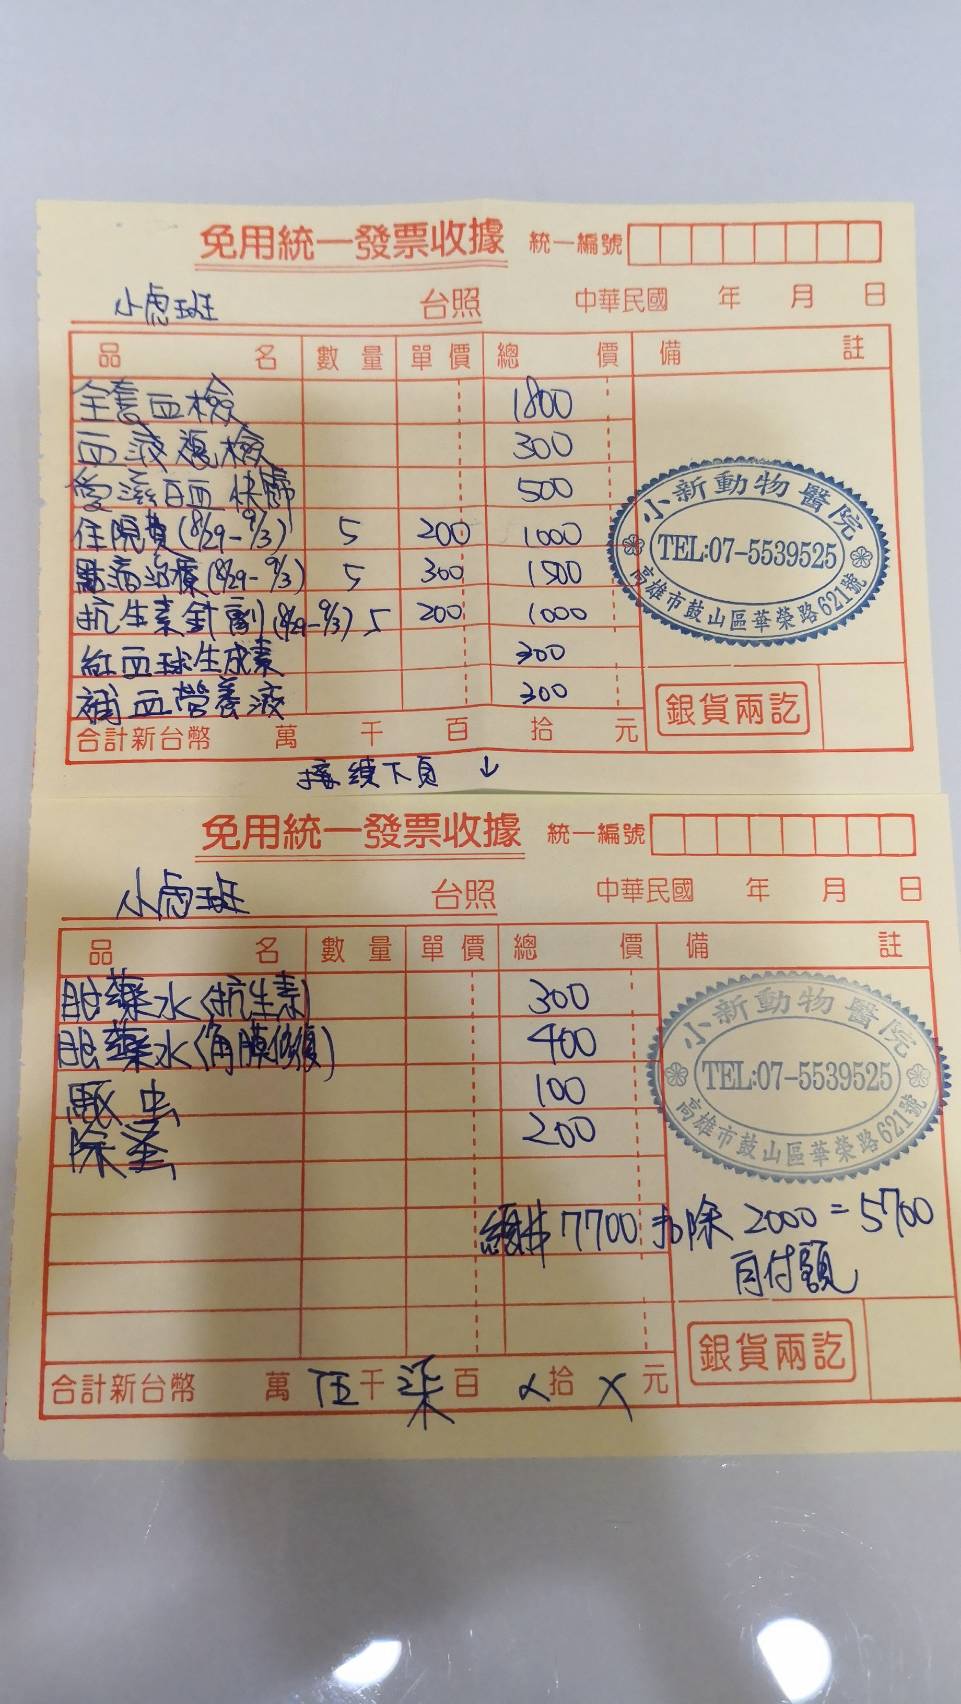 免用統一發票收據 統一編號
小虎班 台照 中華民國 年 月 日
品名 數量 單價 總價 備註
全套血檢 1800
血液複檢 300
愛滋白血快篩 500
住院費(8/29-9/3) 5 200 1000
點滴治療(8/29-9/3) 5 300 1500
抗生素針劑(8/29-9/3) 5 200 1000
紅血球生成素 300
補血營養液 300
小新動物醫院
TEL:07-5539525
高雄市鼓山區華榮路621號
銀貨兩訖
合計新台幣 萬 千 百 拾 元
接續下頁 ↓
免用統一發票收據 統一編號
小虎班 台照 中華民國 年 月 日
品名 數量 單價 總價 備註
眼藥水(抗生素) 300
眼藥水(角膜修復) 400
驅虫 100
除蚤 200
小新動物醫院
TEL:07-5539525
高雄市鼓山區華榮路621號
總共 7700 扣除 2000 = 5700
自付額
銀貨兩訖
合計新台幣 萬 伍千 柒百 X拾 X元